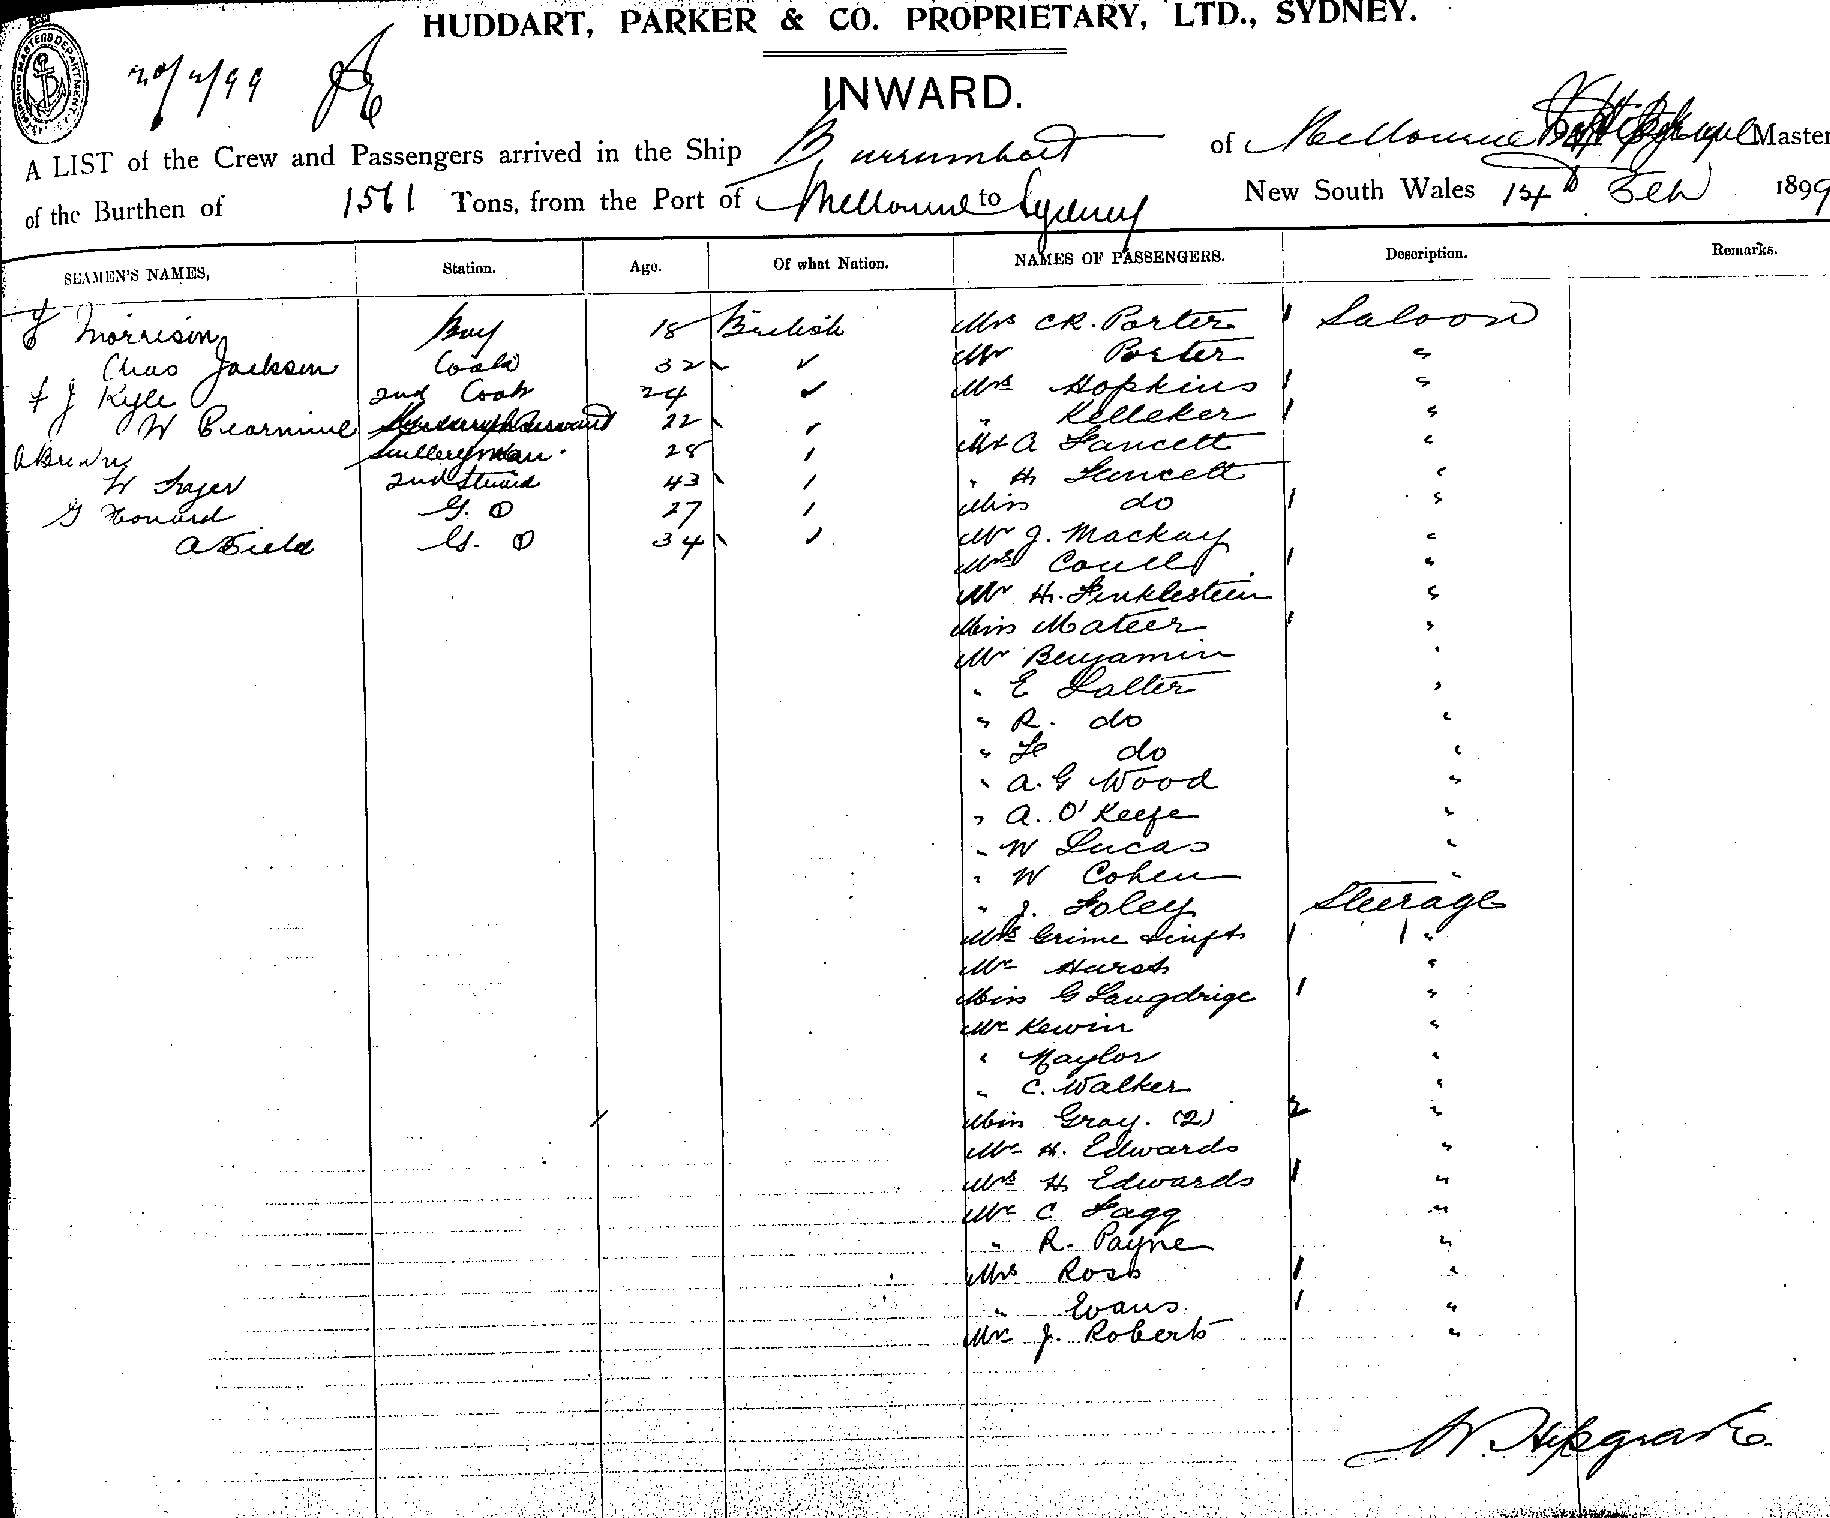 HUDDART, PARKER & CO. PROPRIETARY, LTD., SYDNEY.
INWARD.
A LIST of the Crew and Passengers arrived in the Ship Burrumbeet of Melbourne Master
of the Burthen of 1561 Tons, from the Port of Melbourne to Sydney New South Wales 14th Feb 1899
SEAMEN'S NAMES, Station. Age. Of what Nation. NAMES OF PASSENGERS. Description. Remarks.
Morrison Boy 18 British Mrs CR. Porter 1 Saloon
Chas Jackson Cook 32 ✓ Mr Porter "
J Kyle 2nd Cook 24 ✓ Mrs Hopkins 1 "
W 22 " Kelleher 1 "
Scullery man 28 Mr A Fancett "
W 2nd Steward 43 " H Fancett "
G Howard G. O 27 Miss do 1 "
A Field G. O 34 Mr J. Mackay "
Mrs 1 "
Mr H. Finklestein "
Miss Mateer 1 "
Mr Benjamin "
" E Salter "
" R. do "
" do "
" A. G Wood "
" A. O'Keefe "
" W Lucas "
" W Cohen "
" J. Foley Steerage
Mrs Grime & inft 1 1 "
Mr Hursh "
Miss G Langdrige 1 "
Mr Kewin "
" Naylor "
" C. Walker "
Miss Gray. (2) 2 "
Mr H. Edwards "
Mrs H Edwards 1 "
Mr C Fagg "
" R. Payne "
Mrs Ross 1 "
" Evans 1 "
Mr J. Roberts "
W. Hipgrave